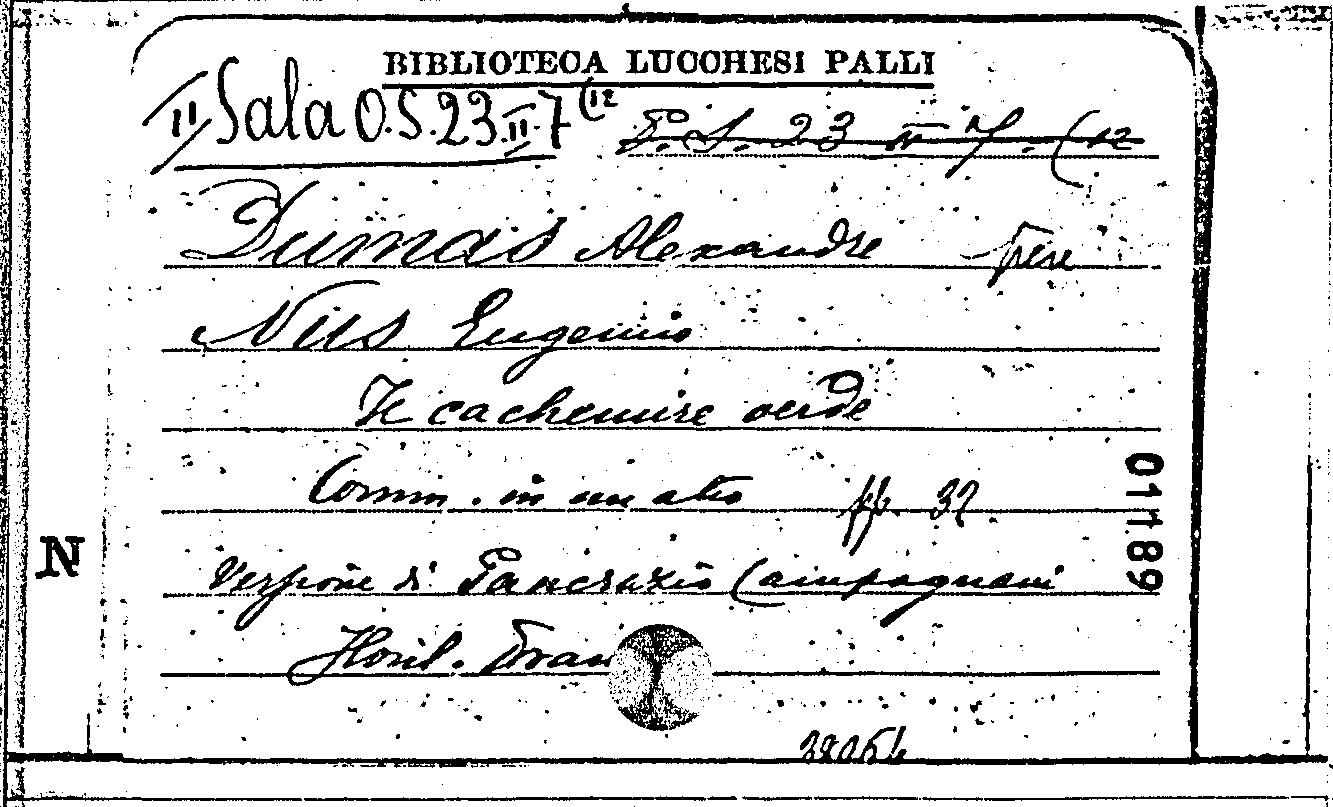 BIBLIOTECA LUCCHESI PALLI
II Sala O.S. 23. II. 7 (12
P. S. 23 II 7. (12
Dumas Alexandre père
Nus Eugenio
Il cachemire verde
Comm. in un atto pp. 32
Versione di Pancrazio Campagnani
Floril. Dram
01189
N
38054